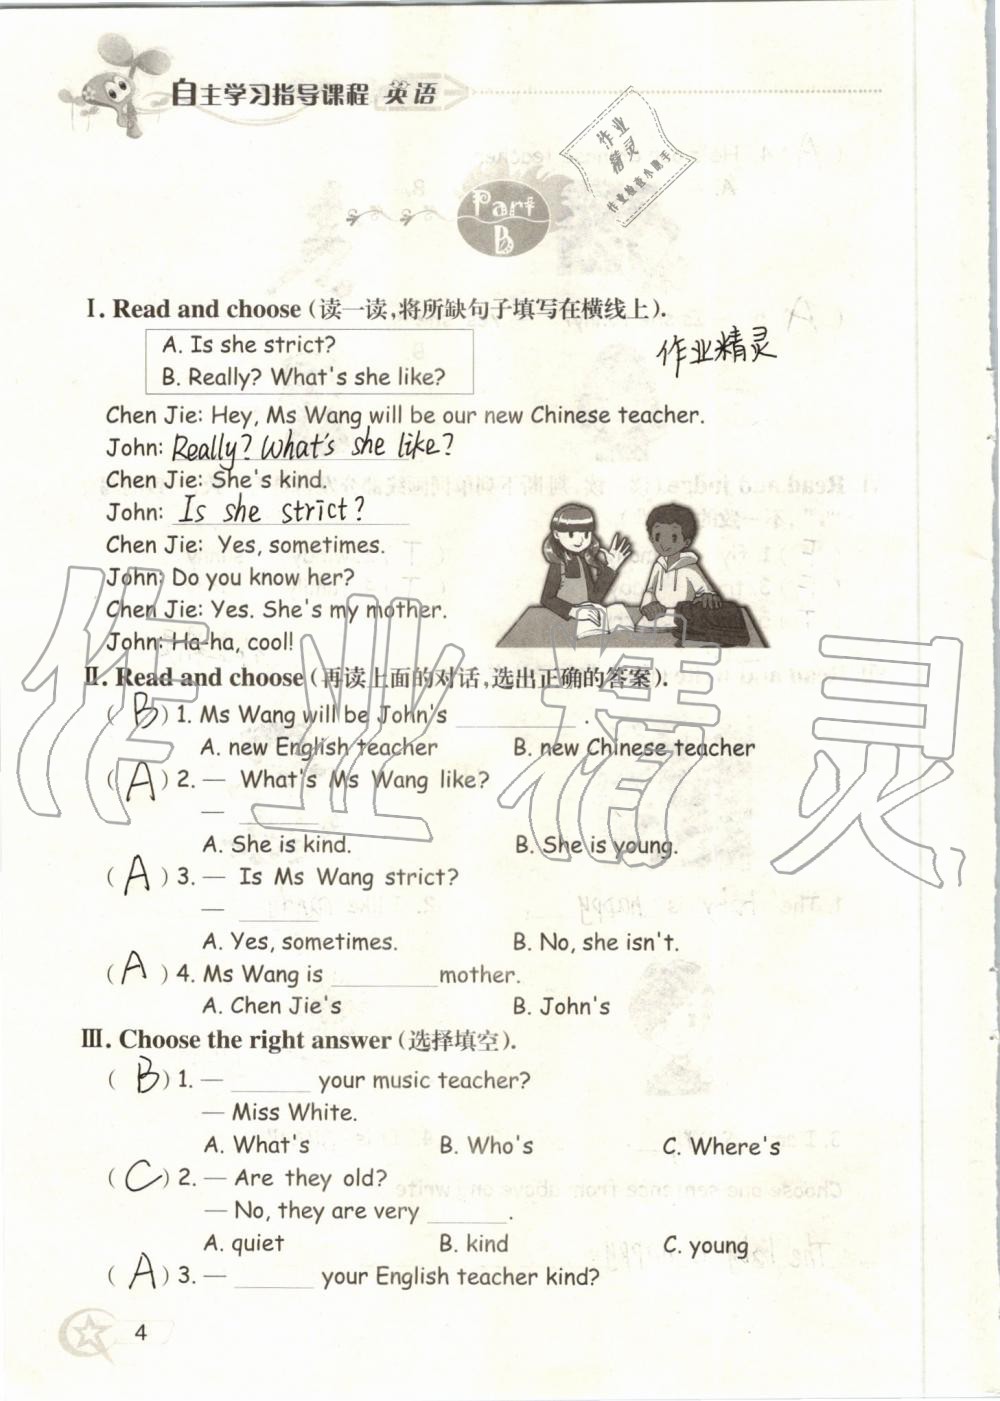 自主学习指导课程 英语
作业
精灵
作业检查小助手
Part
B
Ⅰ. Read and choose (读一读,将所缺句子填写在横线上).
A. Is she strict?
B. Really? What's she like?
作业精灵
Chen Jie: Hey, Ms Wang will be our new Chinese teacher.
John: Really? What's she like?
Chen Jie: She's kind.
John: Is she strict?
Chen Jie: Yes, sometimes.
John: Do you know her?
Chen Jie: Yes. She's my mother.
John: Ha-ha, cool!
Ⅱ. Read and choose (再读上面的对话,选出正确的答案).
( B ) 1. Ms Wang will be John's ________ .
A. new English teacher B. new Chinese teacher
( A ) 2. — What's Ms Wang like?
— ________
A. She is kind. B. She is young.
( A ) 3. — Is Ms Wang strict?
— ________
A. Yes, sometimes. B. No, she isn't.
( A ) 4. Ms Wang is ________ mother.
A. Chen Jie's B. John's
Ⅲ. Choose the right answer (选择填空).
( B ) 1. — ________ your music teacher?
— Miss White.
A. What's B. Who's C. Where's
( C ) 2. — Are they old?
— No, they are very ________ .
A. quiet B. kind C. young
( A ) 3. — ________ your English teacher kind?
4
作业精灵